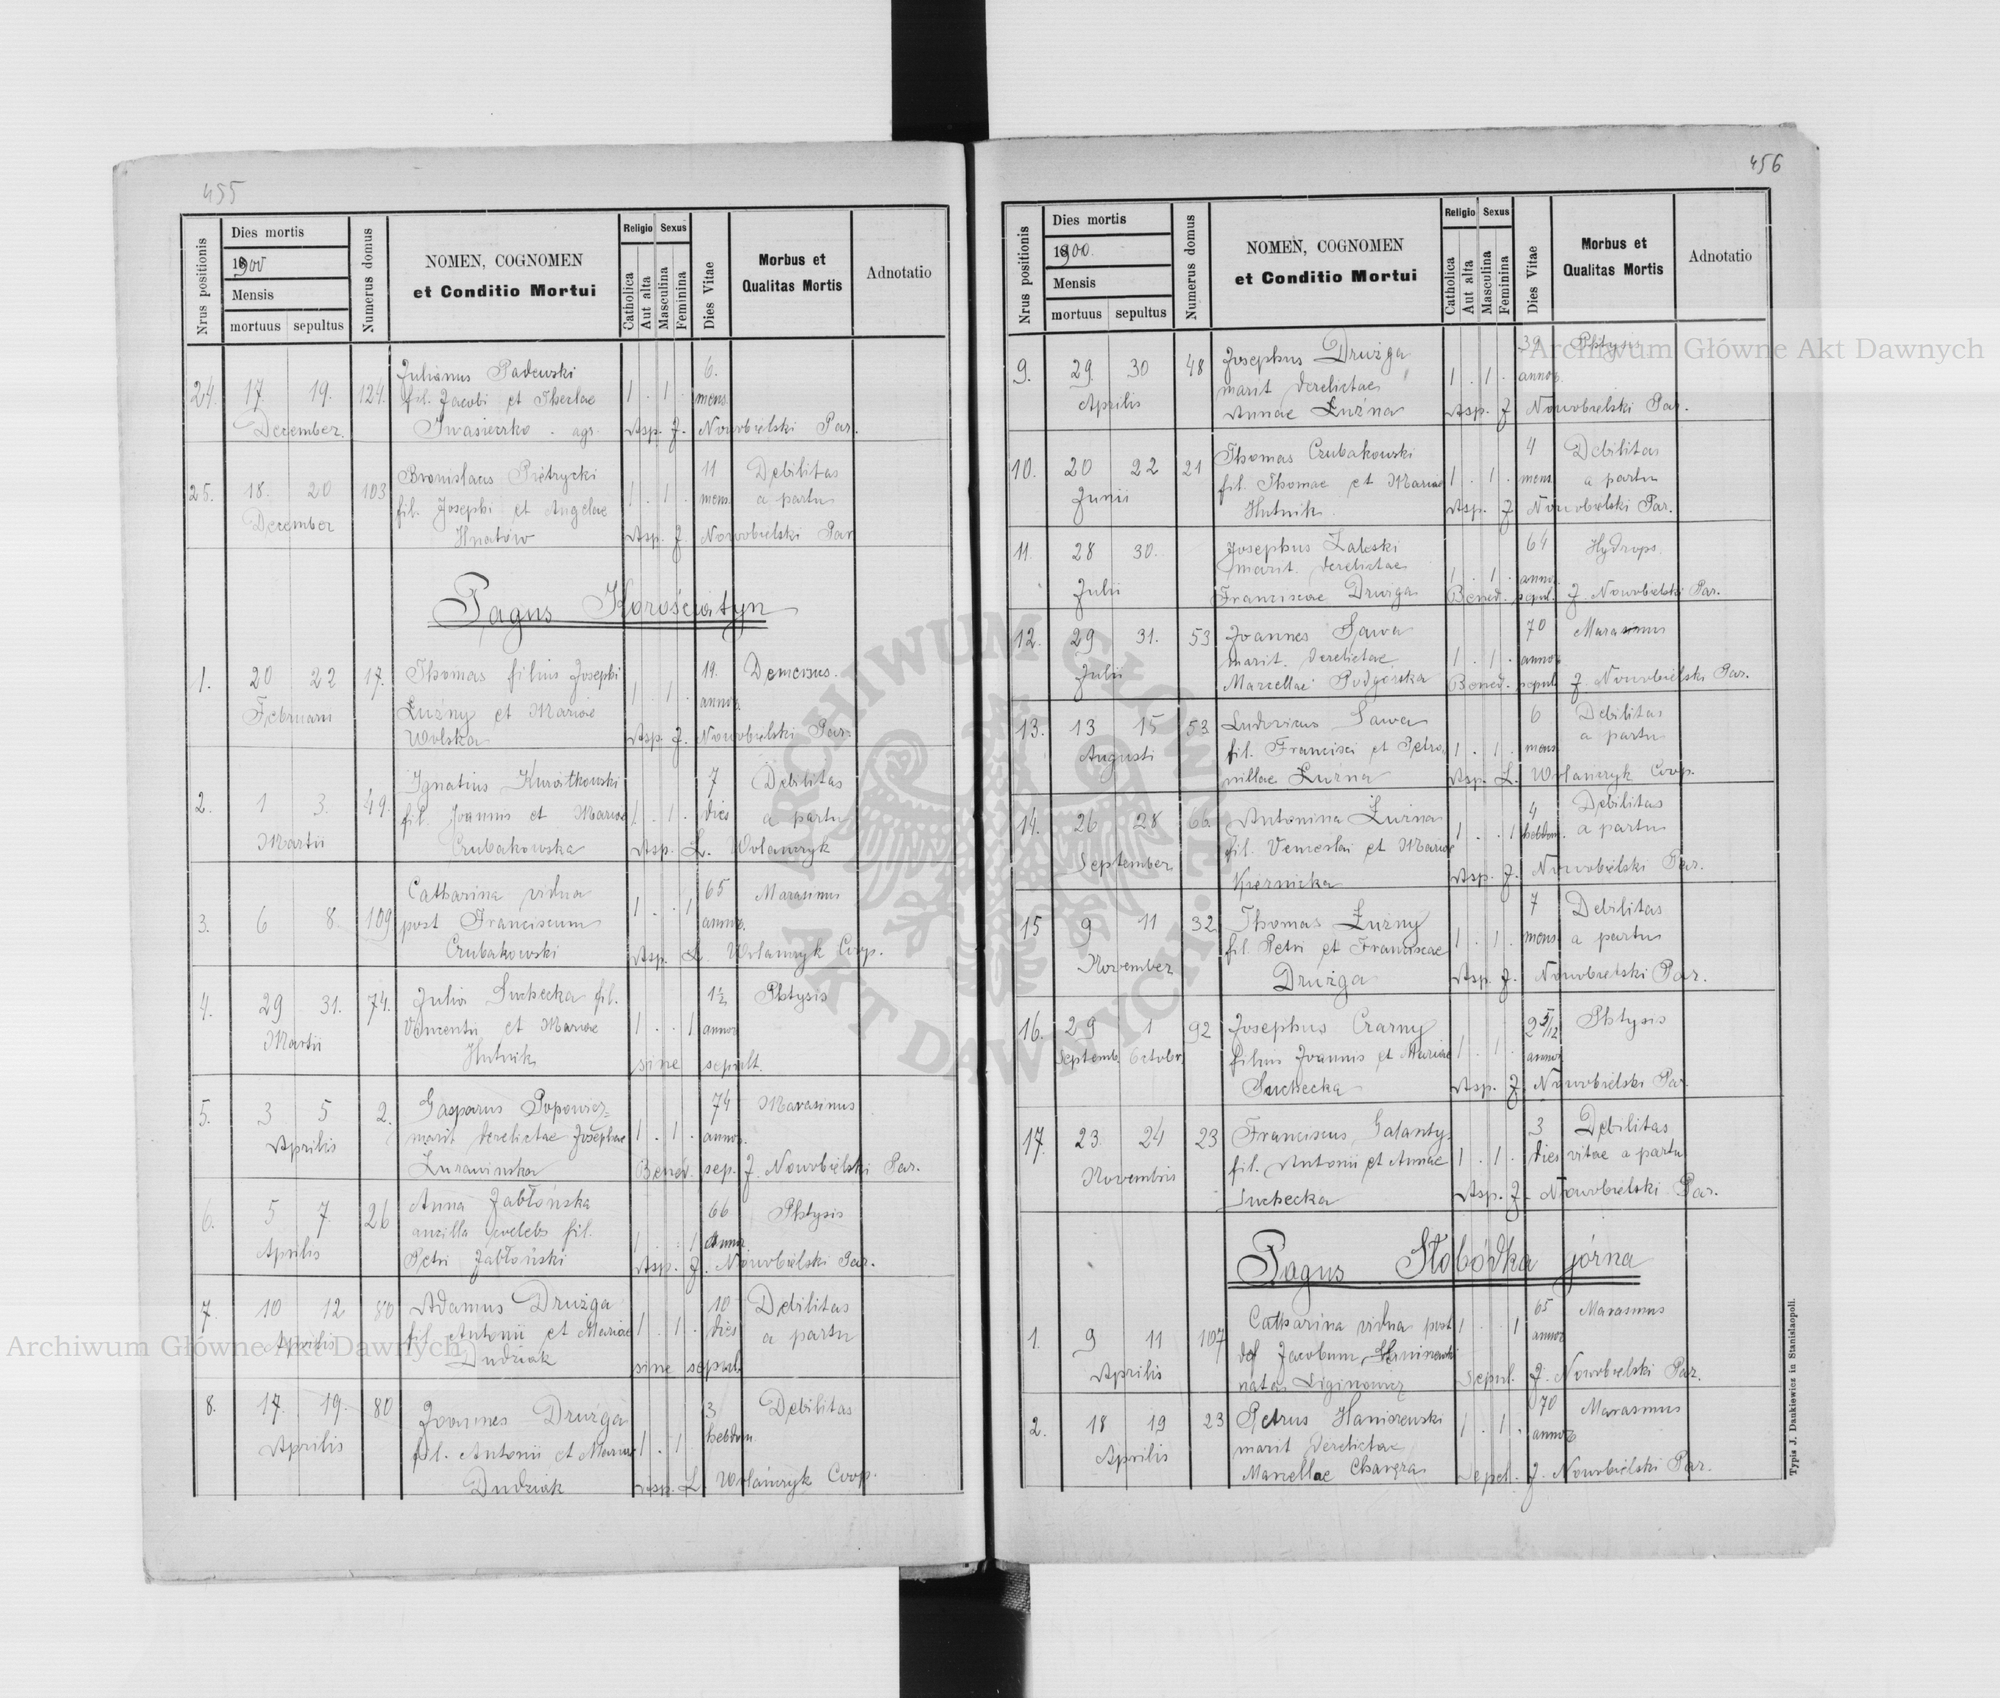 455
Nrus positionis
Dies mortis
1900
Mensis
mortuus sepultus
Numerus domus
NOMEN, COGNOMEN
et Conditio Mortui
Religio Sexus
Catholica
Aut alta
Masculina
Feminina
Dies Vitae
Morbus et
Qualitas Mortis
Adnotatio
24. 17. 19. 124. Julianus Padewski 6.
fil. Jacobi et Theclae 1 . 1 . mens.
December. Iwasieczko . agr. Asp. J. Nowobielski Par.
25. 18. 20 103 Bronislaus Pietrycki 11 Debilitas
fil. Josephi et Angelae 1 . 1 . mens. a partu
December Hnatów Asp. J. Nowobielski Par
Pagus Korościatyn
1. 20 22 17. Thomas filius Josephi 19.
Februarii Łużny et Mariae 1 . 1 . annor.
Wolska Asp. J. Nowobielski Par.
2. 1 3. 49. Ignatius Kwiatkowski 7 Debilitas
fil. Joannis et Mariae 1 . 1 . dies a partu
Martii Czubakowska Asp. L. Wolańczyk
3. 6 8. 109 Catharina vidua 65 Marasmus
post Franciscum 1 . . 1 annor.
Czubakowski Asp. L. Wolańczyk Coop.
4. 29 31. 74. Julia Suchecka fil. 1½ Phtysis
Martii Vincentii et Mariae 1 . . 1 annor
Hutnik sine sepult.
5. 3 5 2. Gasparus Popowicz 74 Marasmus
Aprilis marit derelictae Josephae 1 . 1 . annor.
Bened. sep. J. Nowobielski Par.
6. 5 7 26 Anna Jabłońska 66 Phtysis
Aprilis ancilla coelebs fil. 1 . . 1 annor
Petri Jabłoński Asp. J. Nowobielski Par.
7. 10 12 80 Adamus Drużga 10 Debilitas
Aprilis fil. Antonii et Mariae 1 . 1 . dies a partu
Dudziak sine sepul.
8. 17. 19. 80 Joannes Drużga 3 Debilitas
Aprilis fil. Antonii et Mariae 1 . 1 hebdom
Dudziak Asp. L. Wolańczyk Coop.
456
Nrus positionis
Dies mortis
1900.
Mensis
mortuus sepultus
Numerus domus
NOMEN, COGNOMEN
et Conditio Mortui
Religio Sexus
Catholica
Aut alta
Masculina
Feminina
Dies Vitae
Morbus et
Qualitas Mortis
Adnotatio
9. 29. 30 48 Josephus Drużga 39 Phtysis
marit derelictae 1 . 1 . annor.
Aprilis Annae Łużna Asp. J Nowobielski Par.
10. 20 22 21 Thomas Czubakowski 4 Debilitas
Junii fil. Thomae et Mariae 1 . 1 . mens. a partu
Hutnik. Asp. J Nowobielski Par.
11. 28 30. Josephus Zaleski 64 Hydrops.
Julii marit. derelictae 1 . 1 . annor.
Franciscae Drużga Bened. sepul. J. Nowobielski Par.
12. 29 31. 53 Joannes Sawa 70 Marasmus
Julii marit. derelictae 1 . 1 . annor
Marcellae Podgórska Bened. sepul J. Nowobielski Par.
13. 13 15 53 Ludovicus Sawa 6 Debilitas
Augusti fil. Francisci et Petro- 1 . 1 . mens. a partu
nillae Łużna Asp. L. Wolańczyk Coop.
14. 26 28 66. Antonina Łużna 4 Debilitas
September fil. Venceslai et Mariae 1 . . 1 hebdom. a partu
Kiernicka Asp. J. Nowobielski Par.
15 9 11 32 Thomas Łużny 7 Debilitas
November fil. Petri et Franciscae 1 . 1 . mens a partu
Drużga Asp. J. Nowobielski Par.
16. 29 1 92 Josephus Czarny 2 5/12 Phtysis
Septemb. Octobr. filius Joannis et Mariae 1 . 1 . annor
Suchecka Asp. J. Nowobielski Par
17. 23 24 23 Franciscus Galanty 3 Debilitas
Novembris fil. Antonii et Annae 1 . 1 . dies vitae a partu
Suchecka Asp. J. Nowobielski Par.
Pagus Słobódka górna
1. 9 11 107 Catharina vidua post 1 . . 1 65 Marasmus
def Jacobum annor
Aprilis nata Sepul. J. Nowobielski Par.
2. 18 19 23 Petrus Haniszewski 70 Marasmus
Aprilis marit derelictae 1 . 1 . annor
Marcellae Sepel. J. Nowobielski Par.
Typis J. Dankiewicz in Stanislaopoli.
Archiwum Główne Akt Dawnych
Archiwum Główne Akt Dawnych
ARCHIWUM GŁÓWNE AKT DAWNYCH